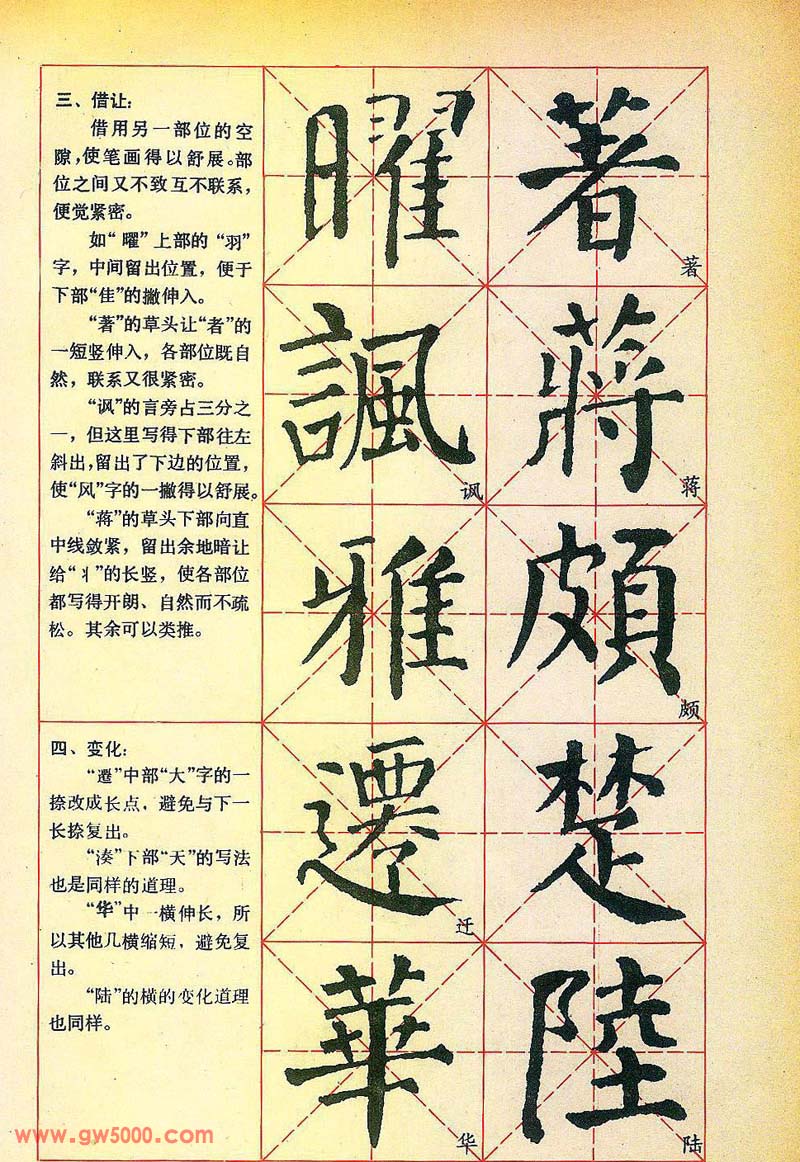 三、借让：
借用另一部位的空
隙，使笔画得以舒展。部
位之间又不致互不联系，
便觉紧密。
如“曜”上部的“羽”
字，中间留出位置，便于
下部“佳”的撇伸入。
“著”的草头让“者”的
一短竖伸入，各部位既自
然，联系又很紧密。
“讽”的言旁占三分之
一，但这里写得下部往左
斜出，留出了下边的位置，
使“风”字的一撇得以舒展。
“蒋”的草头下部向直
中线敛紧，留出余地暗让
给“丬”的长竖，使各部位
都写得开朗、自然而不疏
松。其余可以类推。
四、变化：
“遷”中部“大”字的一
捺改成长点，避免与下一
长捺复出。
“湊”下部“天”的写法
也是同样的道理。
“华”中一横伸长，所
以其他几横缩短，避免复
出。
“陆”的横的变化道理
也同样。
曜 著
著
諷 蔣
讽 蒋
雅 頗
颇
遷 楚
迁
華 陸
华 陆
www.gw5000.com